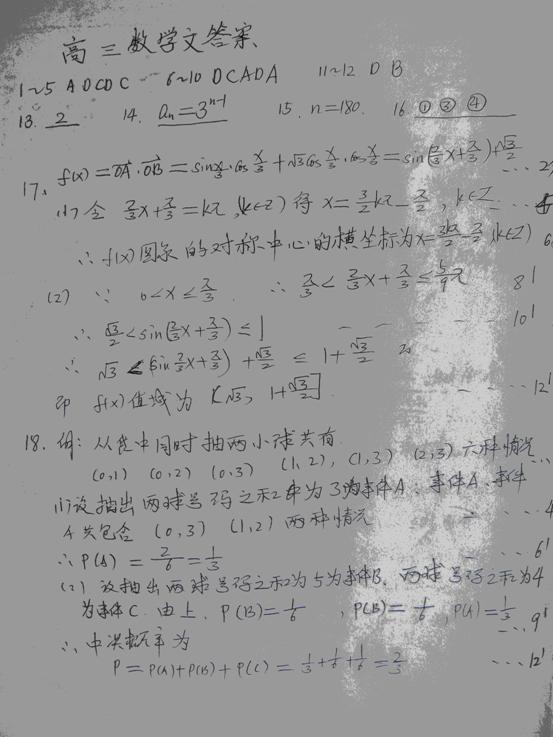 高三数学文答案
1~5 ADCDC 6~10 DCADA 11~12 DB
13. 2 14. an=3^(n-1) 15. n=180. 16 ①③④
17. f(x)=OA·OB=sin x/3·cos x/3+√3cos x/3·cos x/3=sin(2/3x+π/3)+√3/2 ... 2
(1) 令 2/3x+π/3=kπ,(k∈Z) 得 x=3/2kπ-π/2, k∈Z
∴ f(x)图象的对称中心的横坐标为x= (k∈Z) 6
(2) ∵ 0<x≤π/3 ∴ π/3<2/3x+π/3≤5/9π 8'
∴ √3/2<sin(2/3x+π/3)≤1 10'
∴ √3<(sin 2/3x+π/3)+√3/2≤1+√3/2
即 f(x)值域为 (√3, 1+√3/2] ... 12'
18. 解: 从中同时抽两小球共有
(0,1) (0,2) (0,3) (1,2), (1,3) (2,3) 六种情况 ...
(1) 设抽出两球号码之和为3为事件A. 事件A 事件
A共包含 (0,3) (1,2) 两种情况 4
∴ P(A)=2/6=1/3 6'
(2) 设抽出两球号码之和为5为事件B, 两球号码之和为4
为事件C. 由上. P(B)=1/6, P(B)=1/6, P(A)=1/3 ... 9'
∴ 中奖概率为
P=P(A)+P(B)+P(C)=1/3+1/6+1/6=2/3 ... 12'